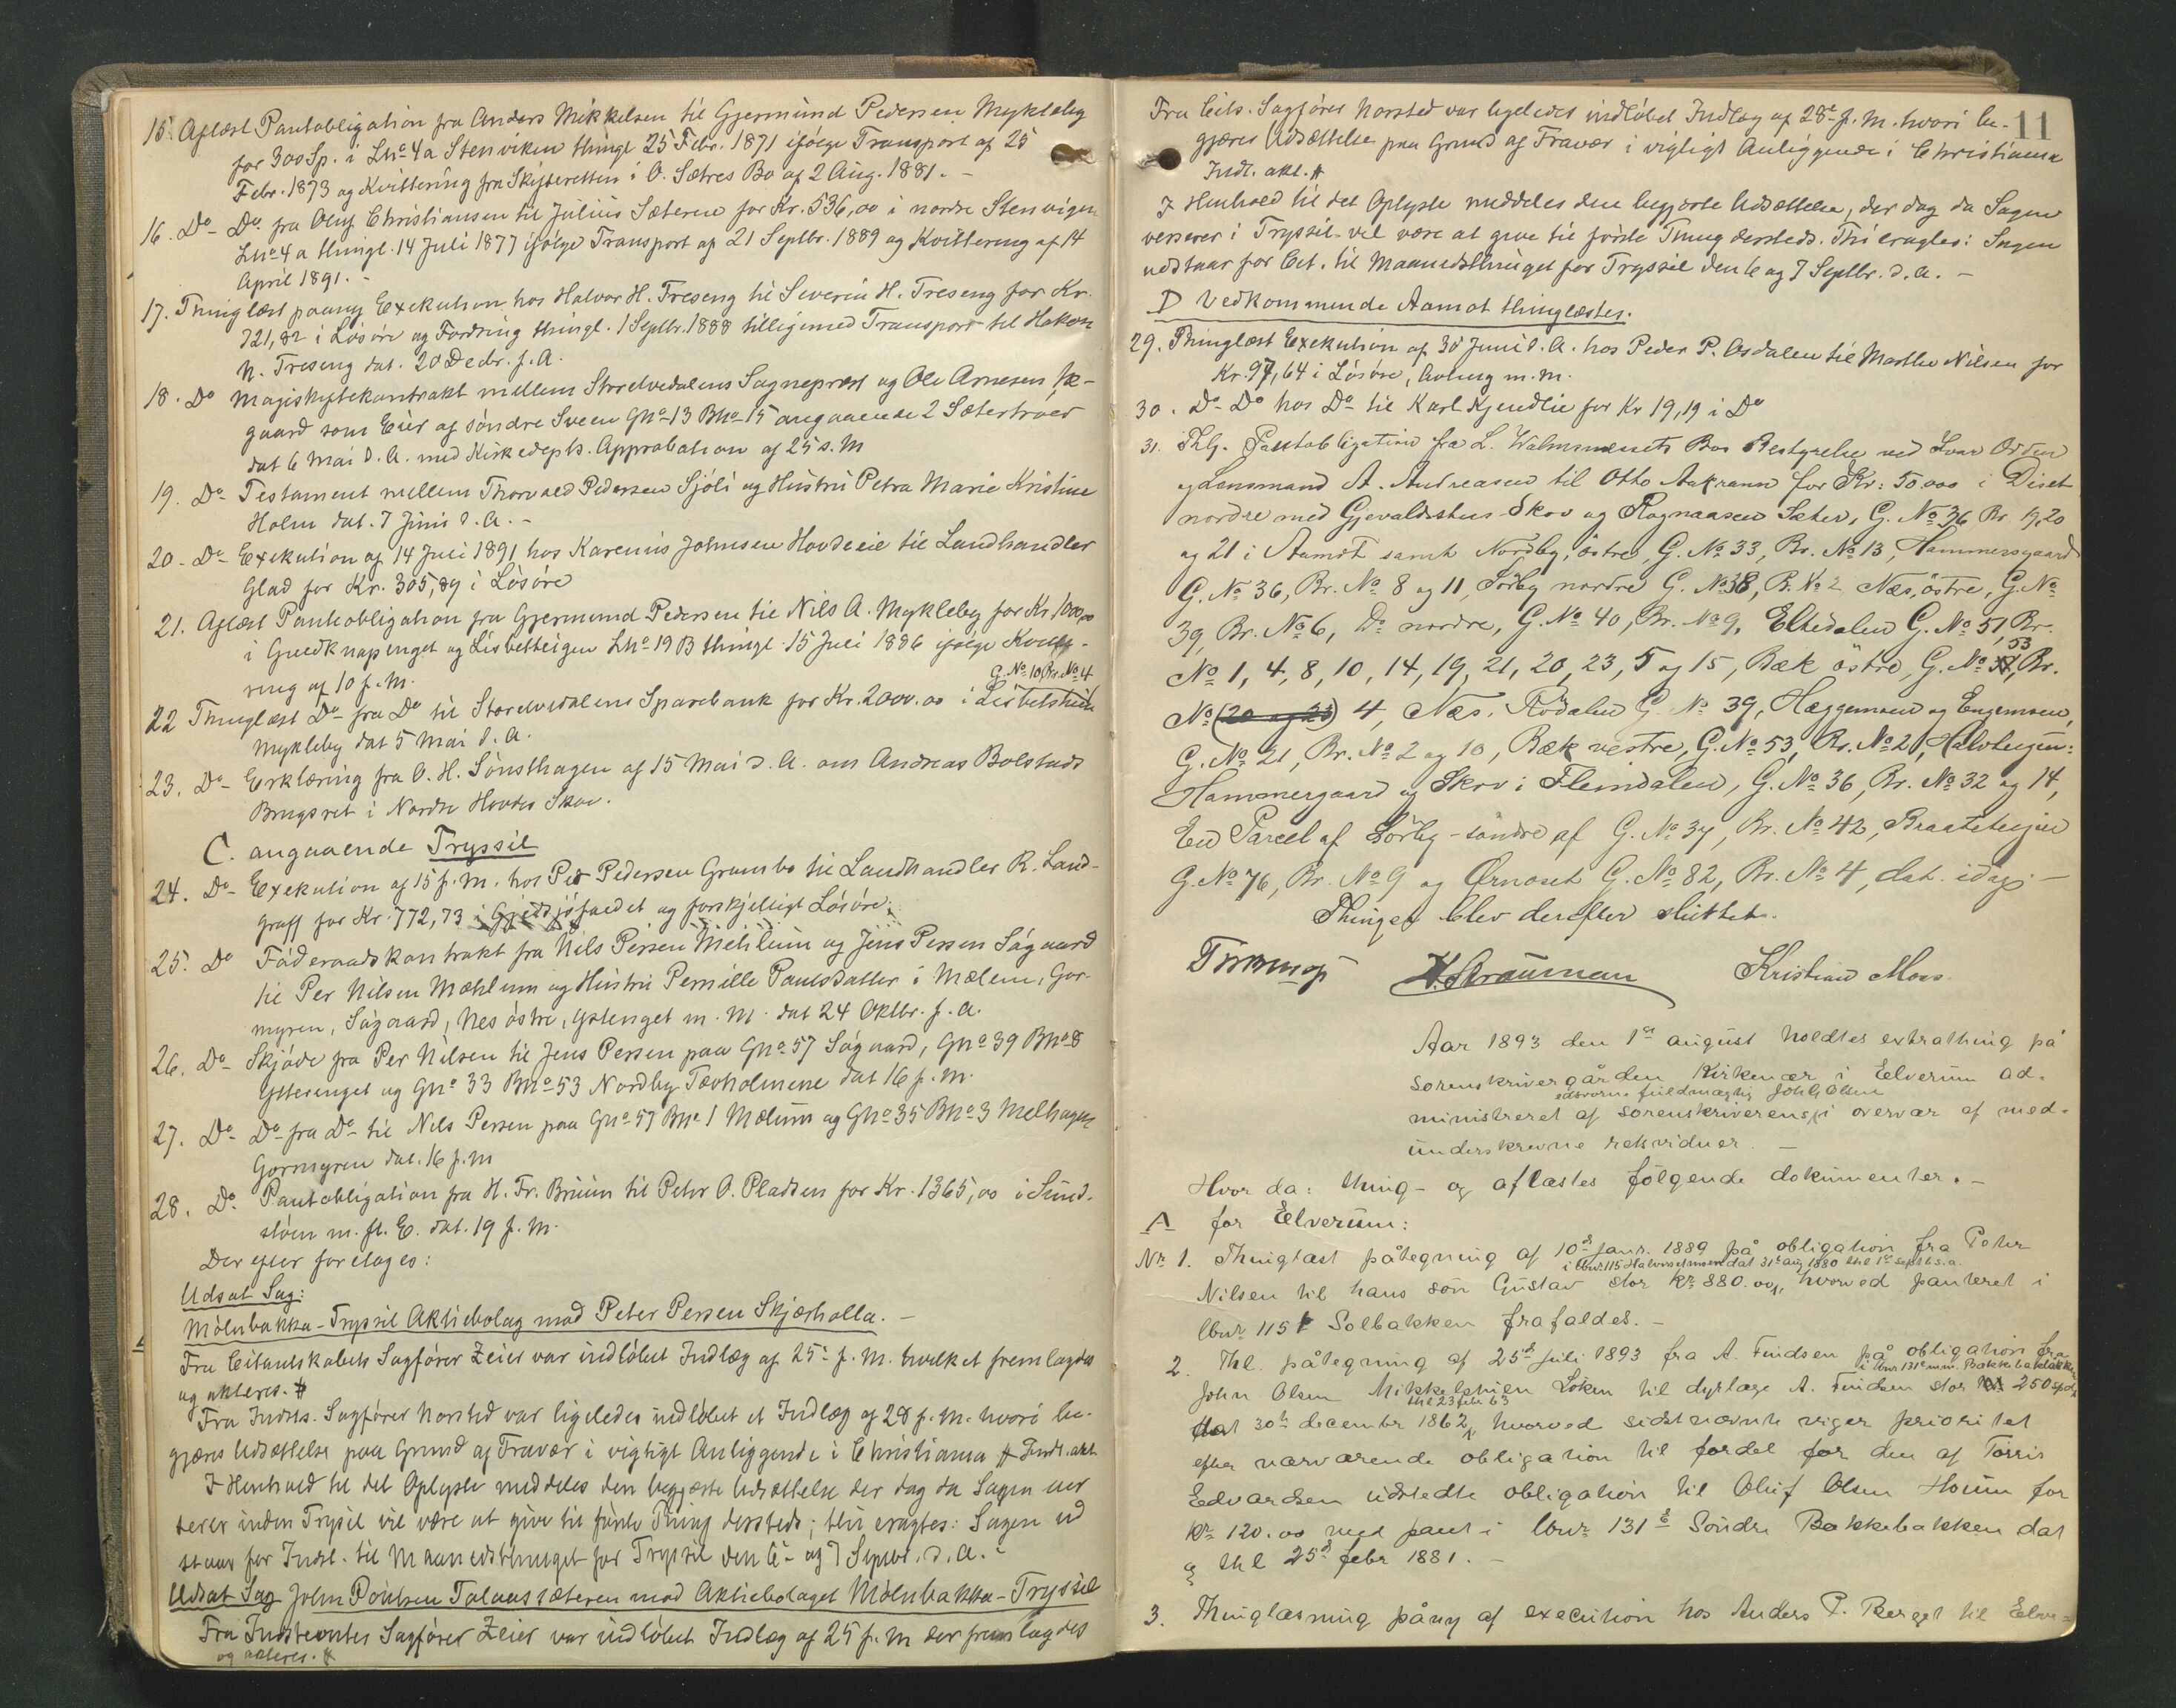 15. Aflæst Pantobligation fra Anders Mikkelsen til Gjermund Pedersen Mykleby
for 300 Sp. i Lno 4a Stenviken thingl 25 Febr. 1871 ifølge Transport af 25
Febr. 1873 og Kvittering fra Skifteretten i O. Sætres Bo af 2 Aug. 1881. -
16. Do- Do fra Oluf Christiansen til Julius Sæteren for Kr. 536,00 i nordre Stenvigen
Lno 4a thingl. 14 Juli 1877 ifølge Transport af 21 Septbr. 1889 og Kvittering af 14
April 1891. -
17. Thinglæst paany Exekution hos Halvor H. Treseng til Severin H. Treseng for Kr.
721,82 i Løsøre og Fordring thingl. 1 Septbr. 1888 tilligemed Transport til Hakon
N. Treseng dat. 20 Decbr. f. A.
18. Do Magiskiftekontrakt mellem Storelvedalens Sogneprest og Ole Arnesen
gaard som Eier af søndre Sveen Gno 13 Bno 15 angaaende 2 Sætertræer
dat 6 Mai d. A. med Kirkedepts. Approbation af 25 s. M
19. Do- Testament mellem Thorvald Pedersen Sjøli og Hustru Petra Marie Kristine
Holm dat. 7 Juni d. A. -
20. Do- Exekution af 14 Juli 1891 hos Karenus Johnsen Hovdeeie til Landhandler
Glad for Kr. 305,89 i Løsøre
21. Aflæst Pantobligation fra Gjermund Pedersen til Nils A. Mykleby for Kr. 1000,00
i Gredknapenget og Lisbetteigen Lno 19B thingl. 15 Juli 1886 ifølge Kvitte-
ring af 10 f. M.
G. No 10, Br. No 4
22 Thinglæst Do- fra Do til Storelvedalens Sparebank for Kr. 2000.00 i
Mykleby dat 5 Mai d. A.
23. Do- Erklæring fra O. H. Sønsthagen af 15 Mai d. A. om Andreas Bolstads
Brugsret i Nordre Hovdes Skov.
C. angaaende Tryssil
24. Do- Exekution af 15 f. M. hos Per Pedersen Grambo til Landhandler R. Land-
graff for Kr. 772,73 i og forskjelligt Løsøre.
25. Do Føderaadskontrakt fra Nils Persen Mehlum og Jens Persen Søgaard
til Per Nilsen Mæhlum og Hustru Pernille Paulsdatter i Mælem, Gor-
myren, Søgaard, Nes østre, Ystenget m. M. dat 24 Oktbr. f. A.
26. Do- Skjøde fra Per Nilsen til Jens Persen paa Gno 57 Søgaard, Gno 39 Bno 8
Ytterenget og Gno 33 Bno 53 Nordby Tævholmene dat 16 f. M.
27. Do- Do- fra Do- til Nils Persen paa Gno 57 Bno 1 Mælum og Gno 35 Bno 3 Melhagen
Gormyren dat. 16 f. M
28. Do. Pantobligation fra H. Fr. Bruun til Peter O. Pladsen for Kr. 1365,00 i Sund-
støen m. fl. E. dat. 19 f. M.
Der efter foretages:
Udsat Sag:
Mölnbakka-Trysil Aktiebolag mod Peter Persen Skjærholla. -
Fra Citantskabets Sagfører Zeier var indløbet Indlæg af 25. f. M. hvilket fremlagdes
og akteres.
Fra Indsts. Sagfører Norsted var ligeledes indløbet et Indlæg af 28 f. M. hvori be-
gjæres Udsættelse paa Grund af Fravær i vigtigt Anliggende i Christiania Indl. akt.
I Henhold til det Oplyste meddeles den begjærte Udsættelse der dog da Sagen ver
serer inden Trysil vil være at give til første Thing dersteds; thi eragtes: Sagen ud
staar for Indst. til Maanedsthinget for Tryssil den 6- og 7 Septbr. d. A. -
Udsat Sag John Poulsen Talaassæteren mod Aktiebolaget Mölnbakka-Tryssil
Fra Indstevntes Sagfører Zeier var indløbet Indlæg af 25 f. M der fremlagdes
og akteres.
11
Fra Cits. Sagfører Norsted var ligeledes indløbet Indlæg af 28de f. M. hvori be-
gjæres Udsættelse paa Grund af Fravær i vigtigt Anliggende i Christiania
Indl. akt.
I Henhold til det Oplyste meddeles den begjærte Udsættelse, der dog da Sagen
verserer i Tryssil vil være at give til første Thing dersteds. Thi eragtes: Sagen
udstaar for Cit. til Maanedsthinget for Tryssil den 6 og 7 Septbr. d. A. -
D Vedkommende Aamot thinglæstes.
29. Thinglæst Exekution af 30 Juni d. A. hos Peder P. Asdalen til Marthe Nilsen for
Kr. 97,64 i Løsøre, Avling m. m.
30. Do- Do hos Do- til Karl Kjendlie for Kr 19,19 i Do
31. Thlg. Pantobligation fra L. Bos Bestyrelse ved Ivar Odden
og Lensmand A. Andreasen til Otto Aakrann for Kr: 50.000 i Diset
nordre med Gjevaldshus Skov og Rognaasen Sæter, G. No 36 Br. 19, 20
og 21 i Aamot samt Nordby, østre, G. No 33, Br. No 13, Hammersgaard
G. No 36, Br. No 8 og 11, Sørby nordre G. No 38, B. No 2 Næs, østre, G. No
39, Br. No 6, Do nordre, G. No 40, Br. No 9, Eltedalen G. No 51, Br.
No 1, 4, 8, 10, 14, 19, 21, 20, 23, 5 og 15, Bæk østre, G. No 53, Br.
No (20 og 23) 4, Næs, Rødalen G. No 39, Hæggemoen og Engemoen,
G. No 21, Br. No 2 og 10, Bæk vestre, G. No 53, Br. No 2, Halvteigen:
Hammergaard og Skov i Flemdalen, G. No 36, Br. No 32 og 14,
En Parcel af Sørby-søndre af G. No 37, Br. No 42, Braateteigen
G. No 76, Br. No 9 og Ørnoset G. No 82, Br. No 4, dat. idag. -
Thinget blev derefter sluttet.
H. Strauman Kristian Moes.
Aar 1893 den 1ste august holdtes extrathing på
sorenskrivergården Kirkenær i Elverum ad-
edsvorne fuldmægtig Joh. G. Olsen
ministreret af sorenskriverens i overvær af med-
underskrevne rettsvidner. -
Hvor da: thing- og aflæstes følgende dokumenter. -
A for Elverum:
Nr. 1. Thinglæst påtegning af 10de janr. 1889 på obligation fra Peter
i lbnr 115 dat 31te aug 1880 thl 1ste septb s.a.
Nilsen til hans søn Gustav stor kr 880.00, hvorved panteret i
lbnr 115 Solbakken frafaldes. -
2. Thl. påtegning af 25de juli 1893 fra A. Findsen på obligation fra
i lbnr 131
John Olsen Løken til dyrlæge A. Findsen stor 250 spd.
thl 23 febr 63
dat 30te decembr 1862, hvorved sidstnævnte viger prioritet
efter nærværende obligation til fordel for den af Torris
Edvardsen udstedte obligation til Oluf Olsen Houm for
kr 120.00 med pant i lbnr 131 Søndre Bakkebakken dat
& thl 25de febr 1881. -
3. Thinglæsning påny af execution hos Anders P. Berget til Elve-